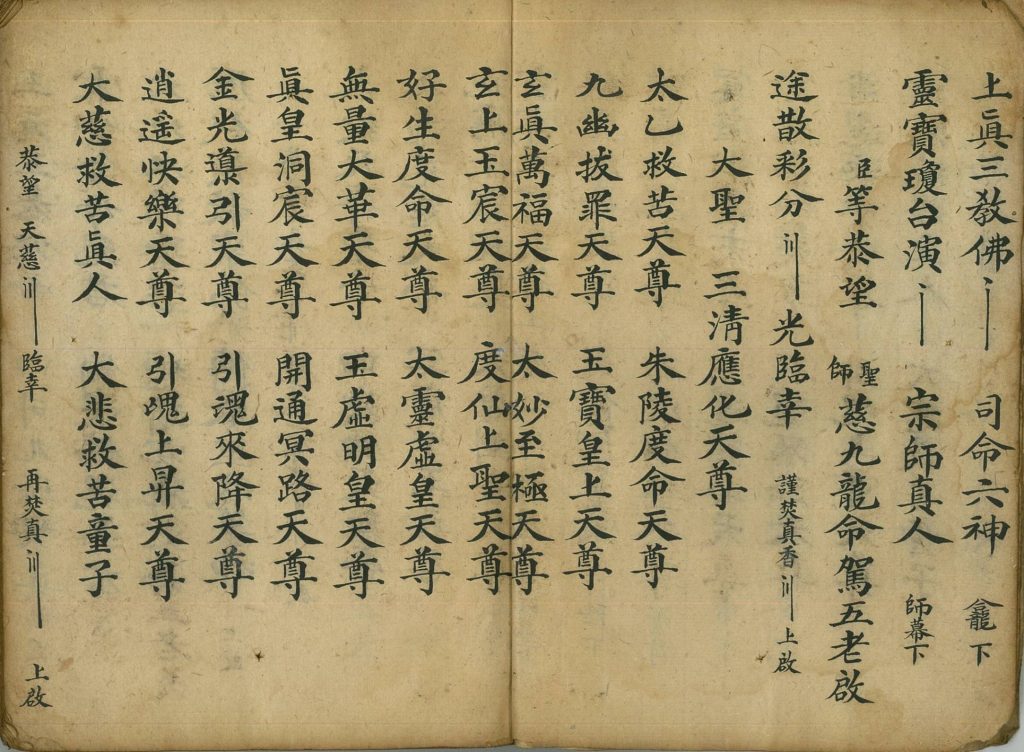 上眞三教佛 司命六神 龕下
靈寶瓊台演 宗師真人 師幕下
臣等恭望 聖師慈九龍命駕五老啟
途散彩分 光臨幸 謹焚真香 上啟
大聖 三清應化天尊
太乙救苦天尊 朱陵度命天尊
九幽拔罪天尊 玉寶皇上天尊
玄眞萬福天尊 太妙至極天尊
玄上玉宸天尊 度仙上聖天尊
好生度命天尊 太靈虛皇天尊
無量大華天尊 玉虛明皇天尊
眞皇洞宸天尊 開通冥路天尊
金光導引天尊 引魂來降天尊
逍遥快樂天尊 引魂上昇天尊
大慈救苦眞人 大悲救苦童子
恭望 天慈 臨幸 再焚真 上啟